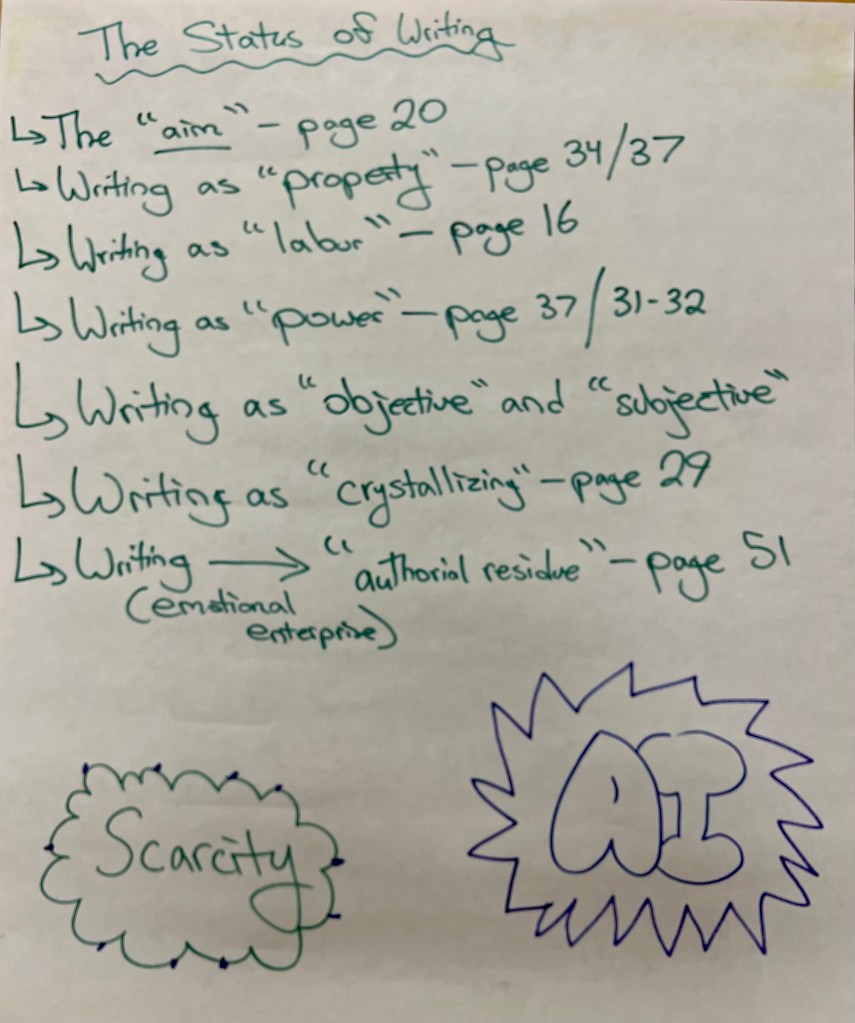 The Status of Writing
↳ The "aim" - page 20
↳ Writing as "property" - page 34/37
↳ Writing as "labur" - page 16
↳ Writing as "power" - page 37/31-32
↳ Writing as "objective" and "subjective"
↳ Writing as "crystallizing" - page 29
↳ Writing → "authorial residue" - page 51
(emotional
enterprise)
Scarcity
AI